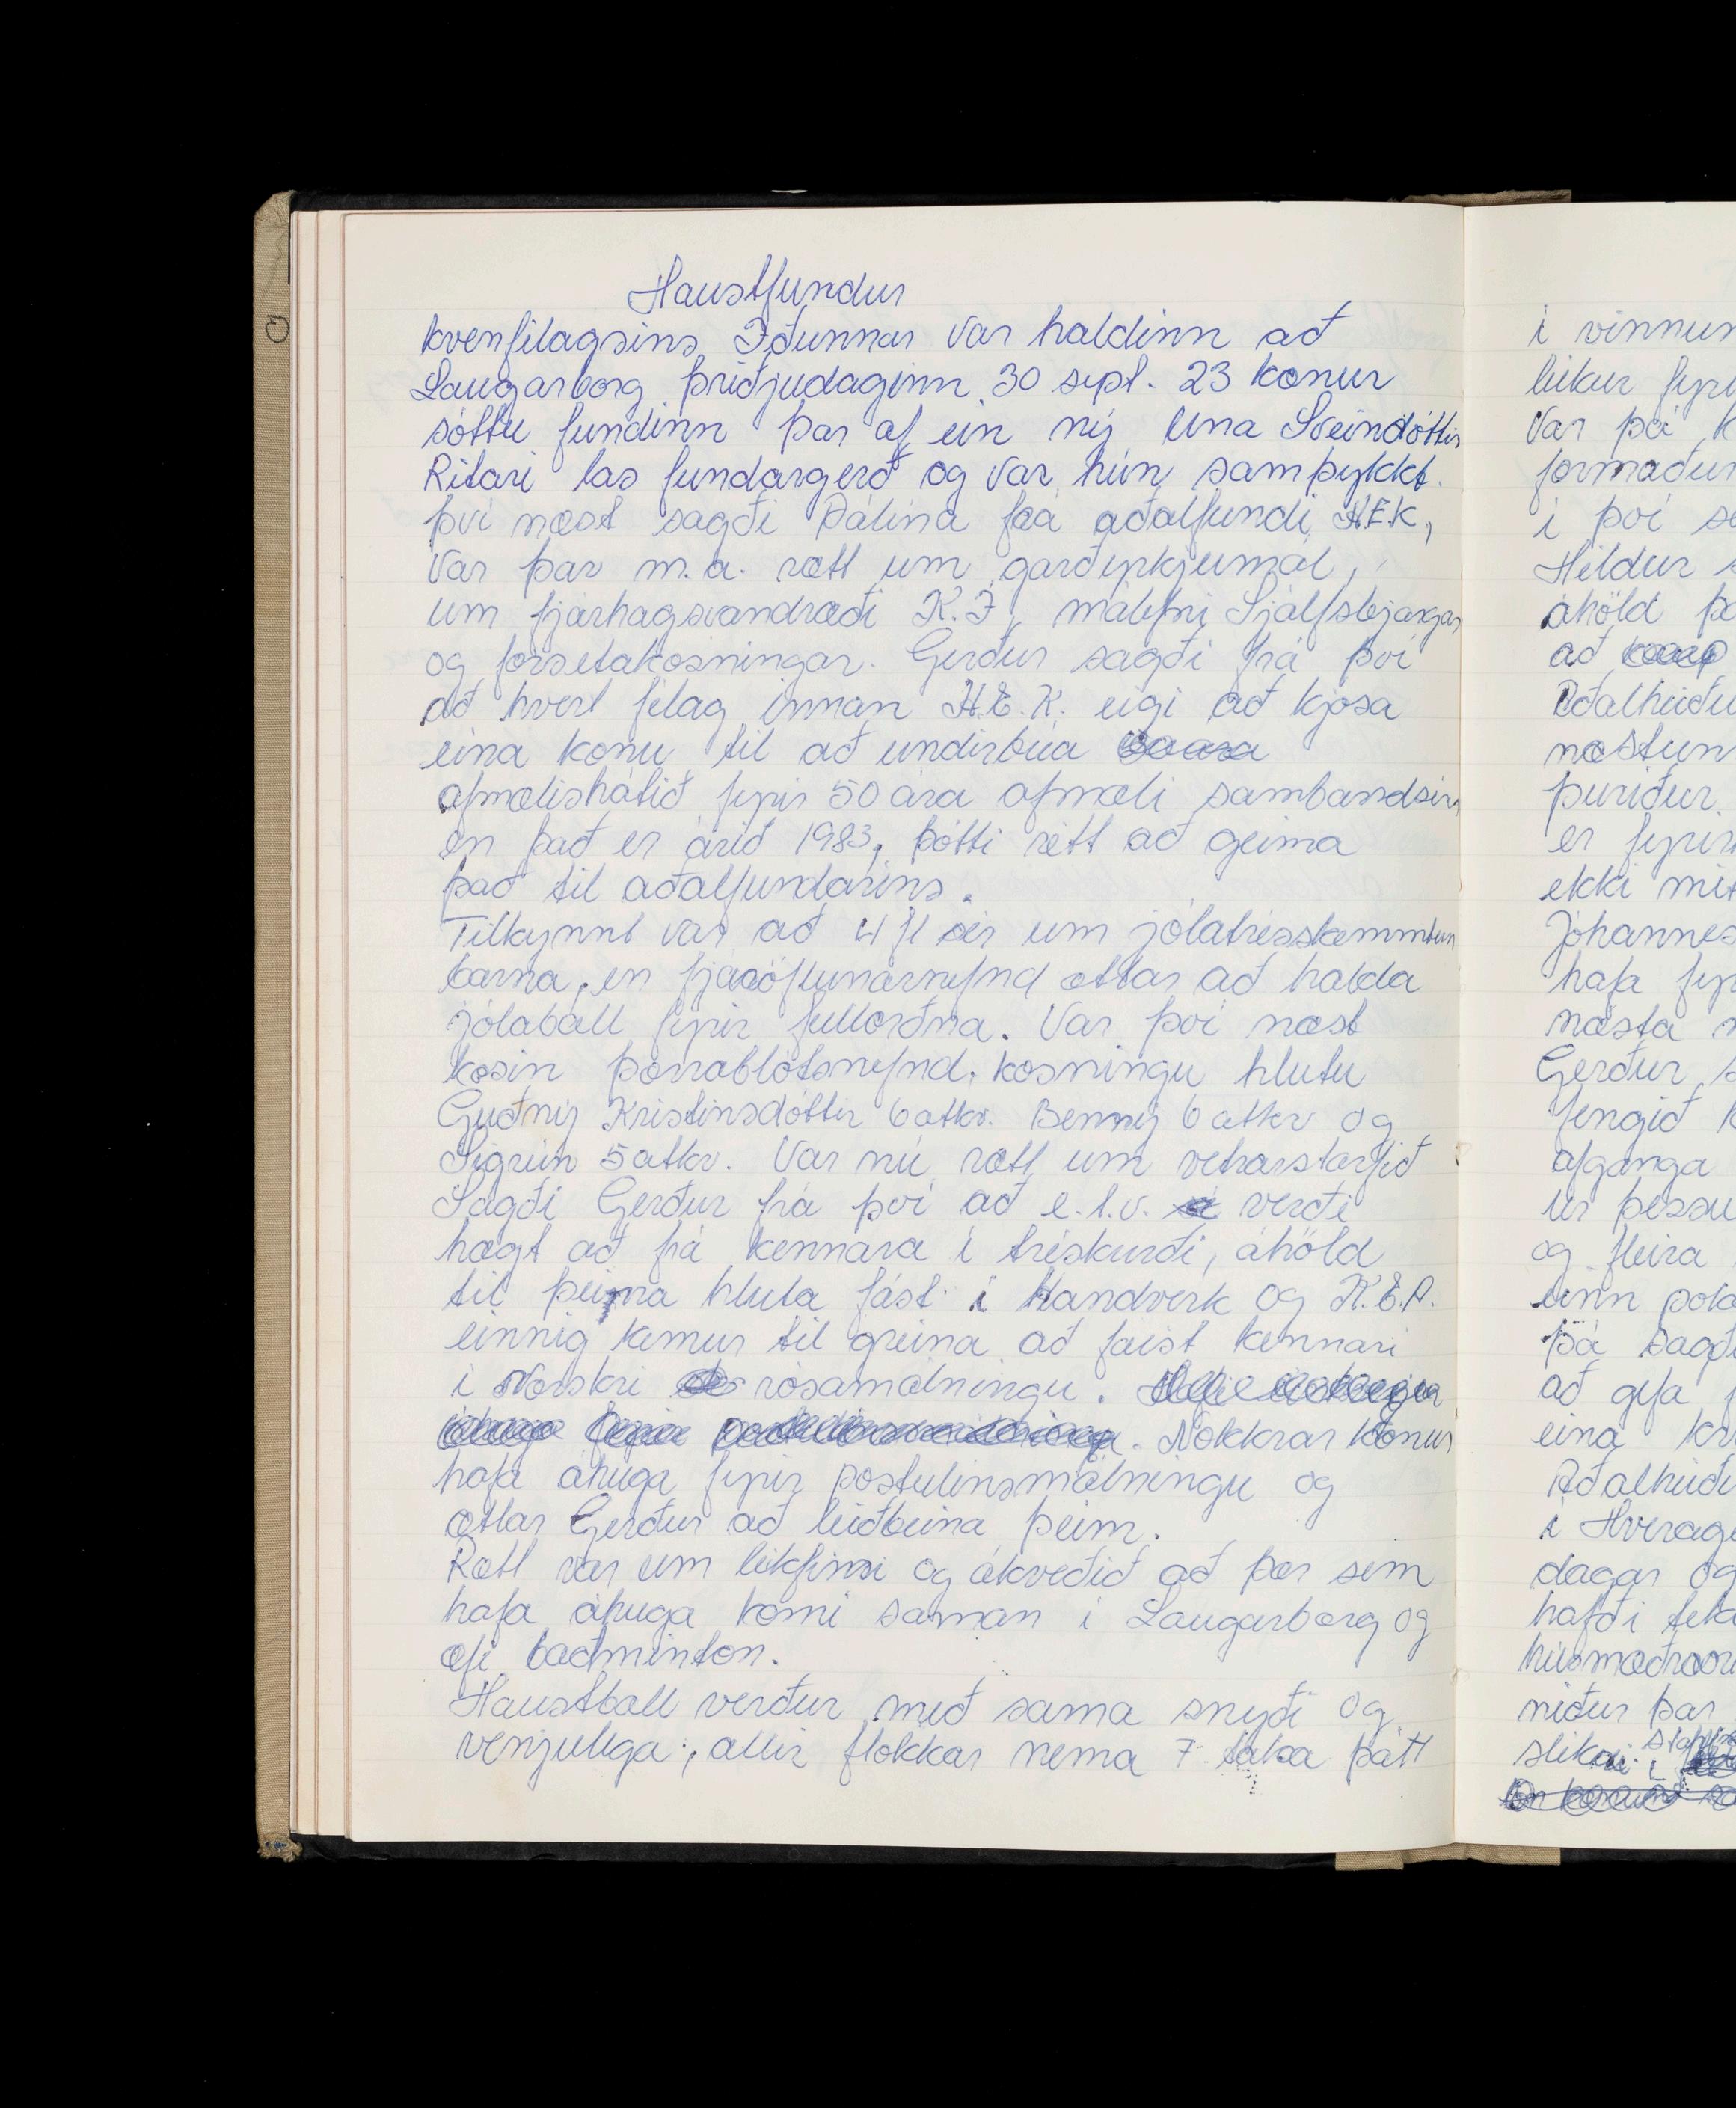 Haustfundur
kvenfélagsins Iðunnar var haldinn að
Laugarborg þriðjudaginn 30 sept. 23 konur
sóttu fundinn þar af ein ný Una Sveindóttir
Ritari las fundargerð og var hún samþykkt.
því næst sagði Pálína frá aðalfundi H.E.K,
Var þar m.a. rætt um garðyrkjumál,
um fjárhagsvandræði K.Í, málefni Sjálfsbjargar
og forsetakosningar. Gerður sagði frá því
að hvert félag innan H.E.K. eigi að kjósa
eina konu til að undirbúa
afmælishátið fyrir 50 ára afmæli sambandsins
en það er árið 1983, þótti rétt að geima
það til aðalfundarins.
Tilkynnt var að 4 fl sér um jólatrésskemmtun
barna, en fjáröflunarnefnd ætlar að halda
jólaball fyrir fullorðna. Var því næst
kosin þorrablótsnefnd, kosningu hlutu
Guðný Kristinsdóttir 6 atkv. Benný 6 atkv og
Sigrún 5 atkv. Var nú rætt um vetrarstarfið
Sagði Gerður frá því að e.t.v. verði
hægt að fá kennara í tréskurði, áhöld
til þeirra hluta fást í Handverk og K.E.A.
einnig kemur til greina að fáist kennari
í Norskri rósamálningu.
Nokkrar konur
hafa áhuga fyrir postulinsmálningu og
ætlar Gerður að leiðbeina þeim.
Rætt var um leikfimi og ákveðið að þær sem
hafa áhuga komi saman í Laugarborg og
æfi badminton.
Haustball verður með sama sniði og
venjulega, allir flokkar nema 7 taka þátt
í
leikur
Var þá
formaður
í því
Hildur
áhöld
að
næstun
þuriður.
er
ekki
Jóhannes
hafa
næsta
Gerður
fengið
afganga
úr þessu
og fleira
einn
þá sagði
að gefa
eina
í
dagar og
hafði
niður þar